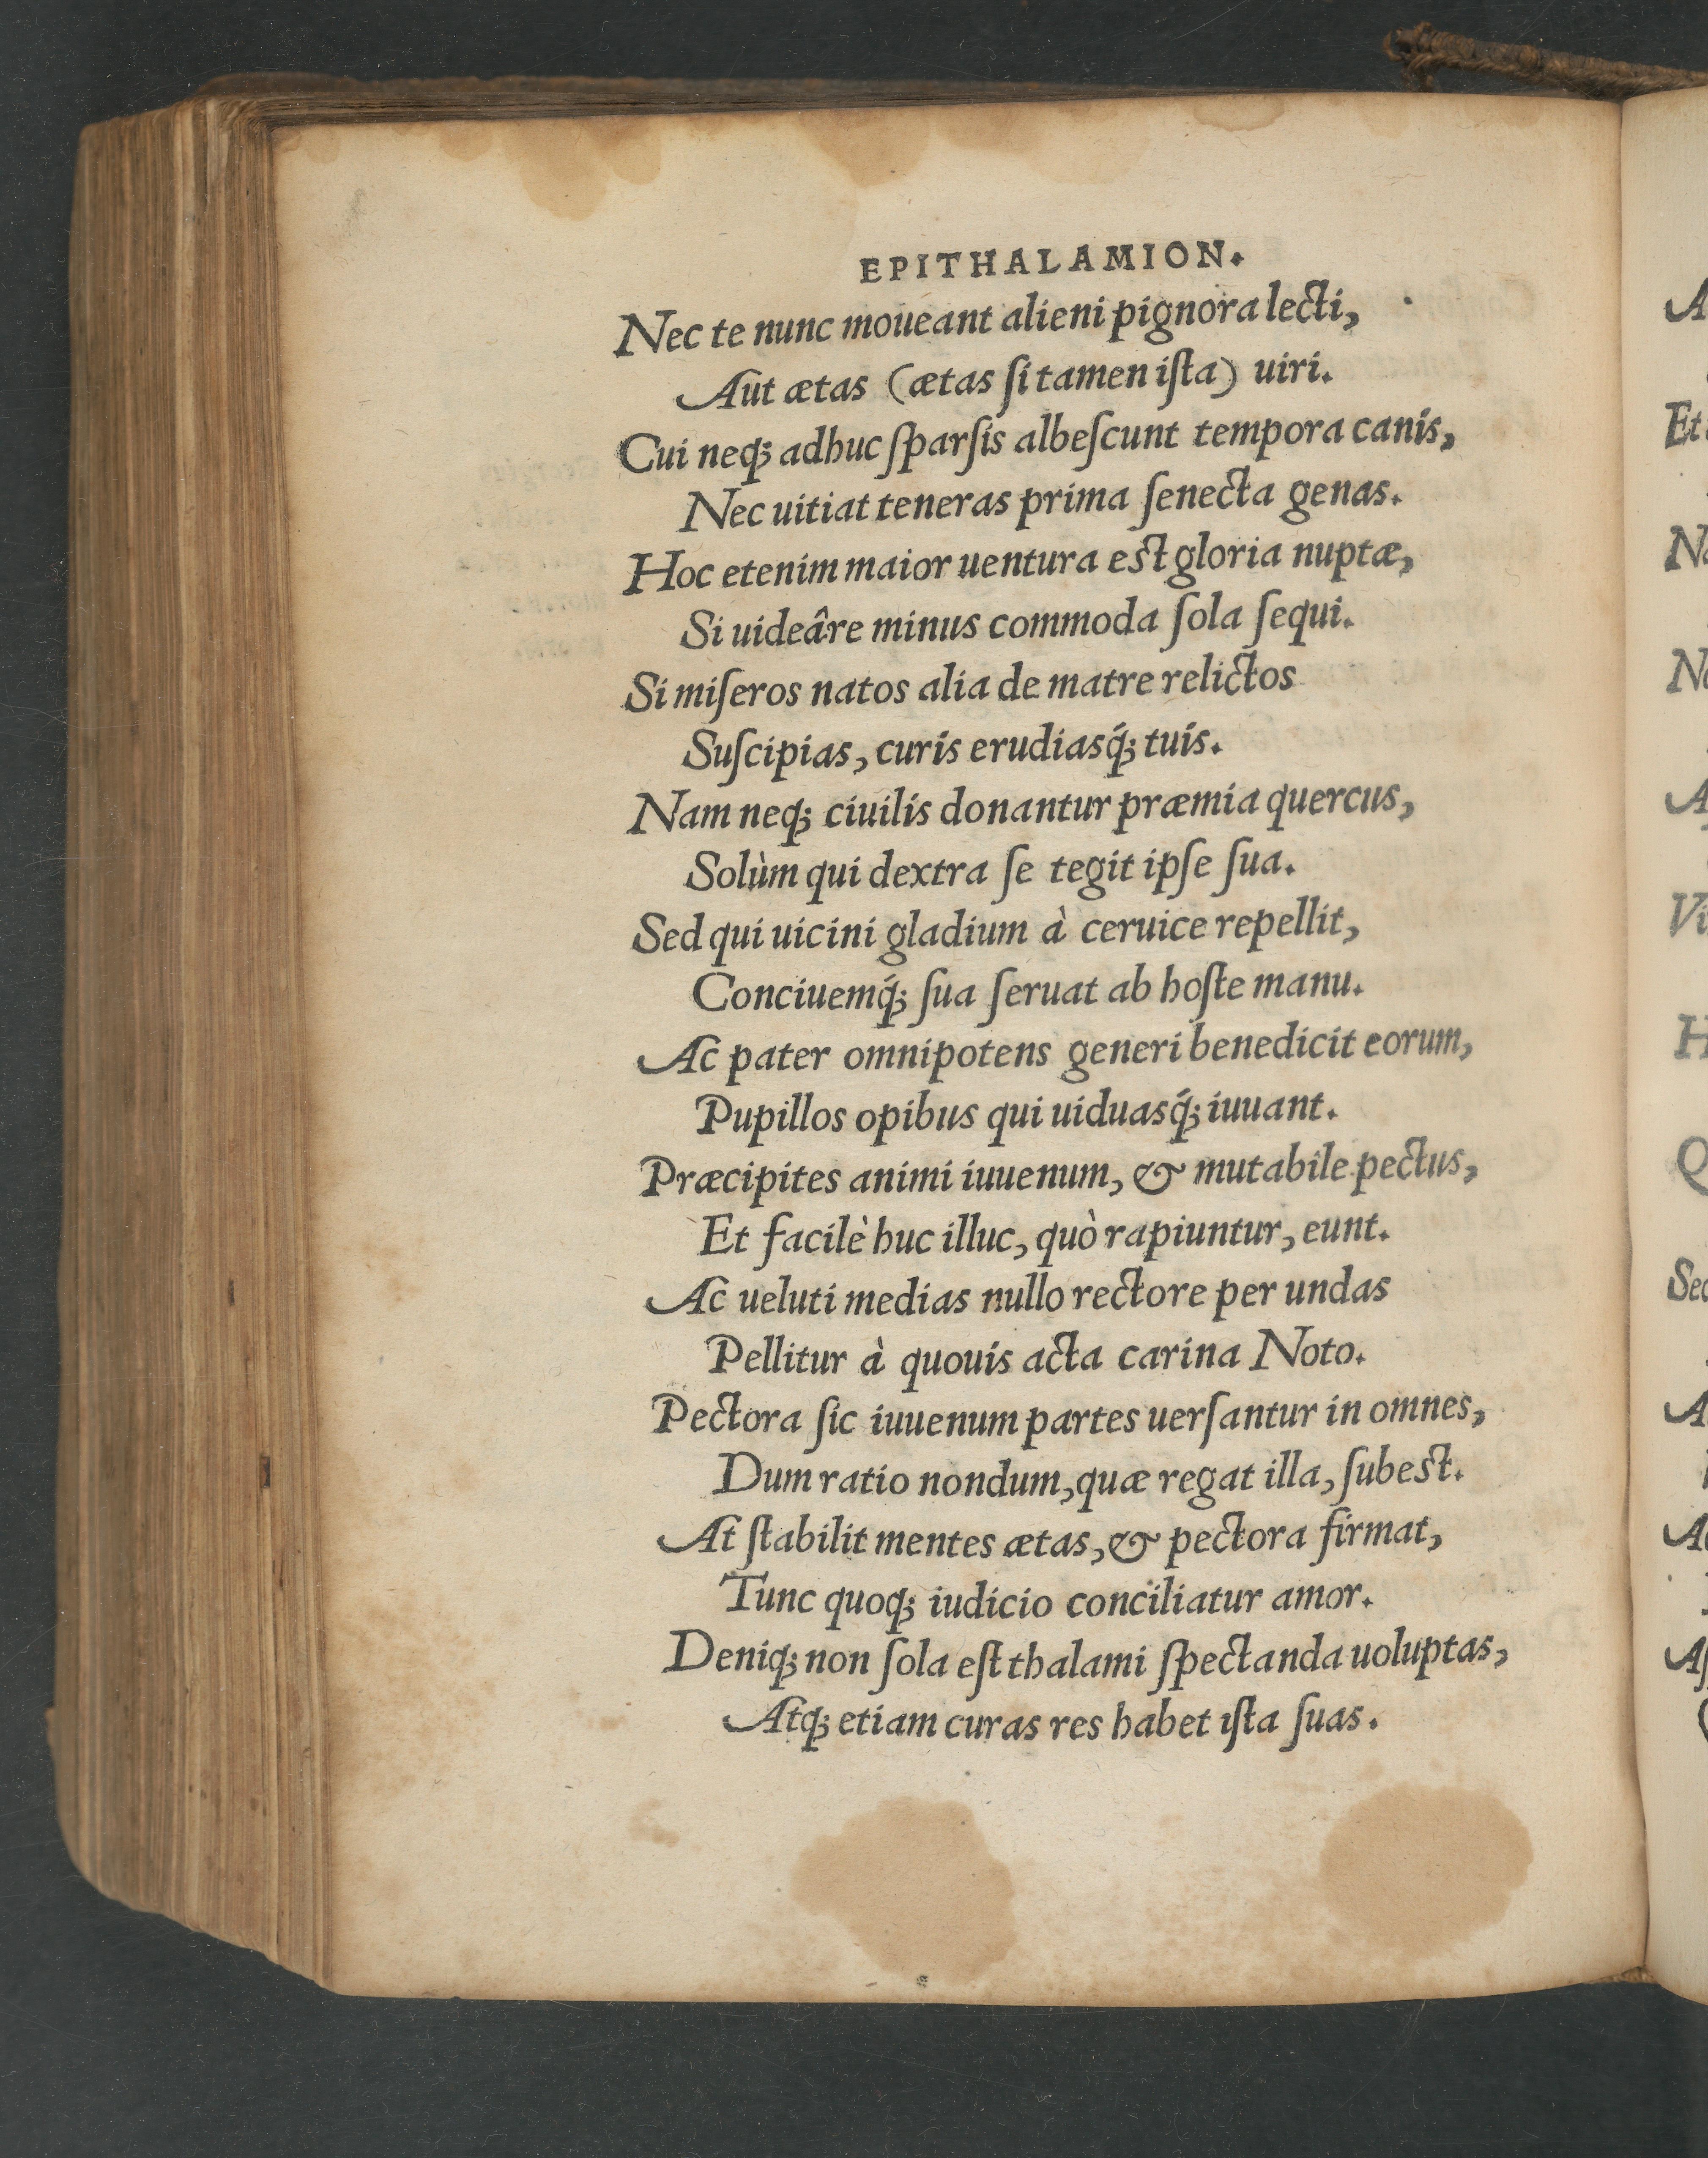 EPITHALAMION.
Nec te nunc moueant alieni pignora lecti,
Aut ætas (ætas ſi tamen iſta) uiri.
Cui neq; adhuc ſparſis albeſcunt tempora canis,
Nec uitiat teneras prima ſenecta genas.
Hoc etenim maior uentura est gloria nuptæ,
Si uideâre minus commoda ſola ſequi.
Si miſeros natos alia de matre relictos
Suſcipias, curis erudiasq́; tuis.
Nam neq; ciuilis donantur præmia quercus,
Solùm qui dextra ſe tegit ipſe ſua.
Sed qui uicini gladium à ceruice repellit,
Conciuemq́; ſua ſeruat ab hoſte manu.
Ac pater omnipotens generi benedicit eorum,
Pupillos opibus qui uiduasq́; iuuant.
Præcipites animi iuuenum, & mutabile pectus,
Et facilè huc illuc, quò rapiuntur, eunt.
Ac ueluti medias nullo rectore per undas
Pellitur à quouis acta carina Noto.
Pectora ſic iuuenum partes uerſantur in omnes,
Dum ratio nondum, quæ regat illa, ſubest.
At ſtabilit mentes ætas, & pectora firmat,
Tunc quoq; iudicio conciliatur amor.
Deniq; non ſola eſt thalami ſpectanda uoluptas,
Atq; etiam curas res habet iſta ſuas.